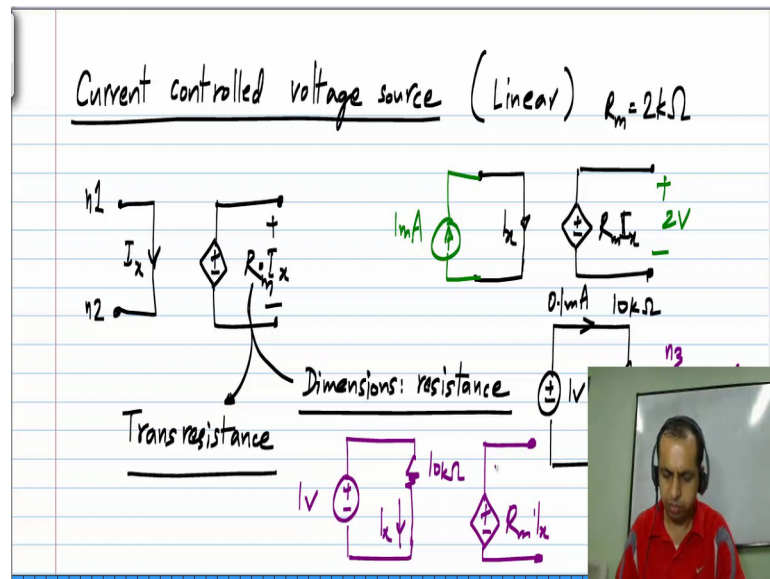 Current controlled voltage source (Linear) Rm = 2kΩ
n1
Ix
n2
+
Rm Ix
−
1mA
Ix
Rm Ix
+
2V
−
0.1mA 10kΩ
1V
n3
Dimensions: resistance
Transresistance
1V
10kΩ
Ix
Rm Ix